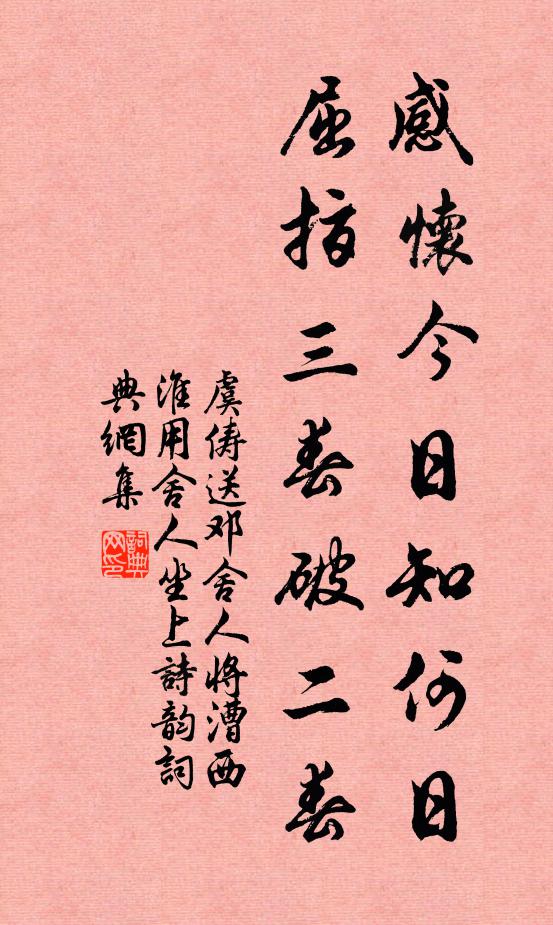 感懷今日知何日
屈指三春破二春
虞儔送邓舍人將漕西
淮用舍人坐上詩韵詞
典網集
詞典网印